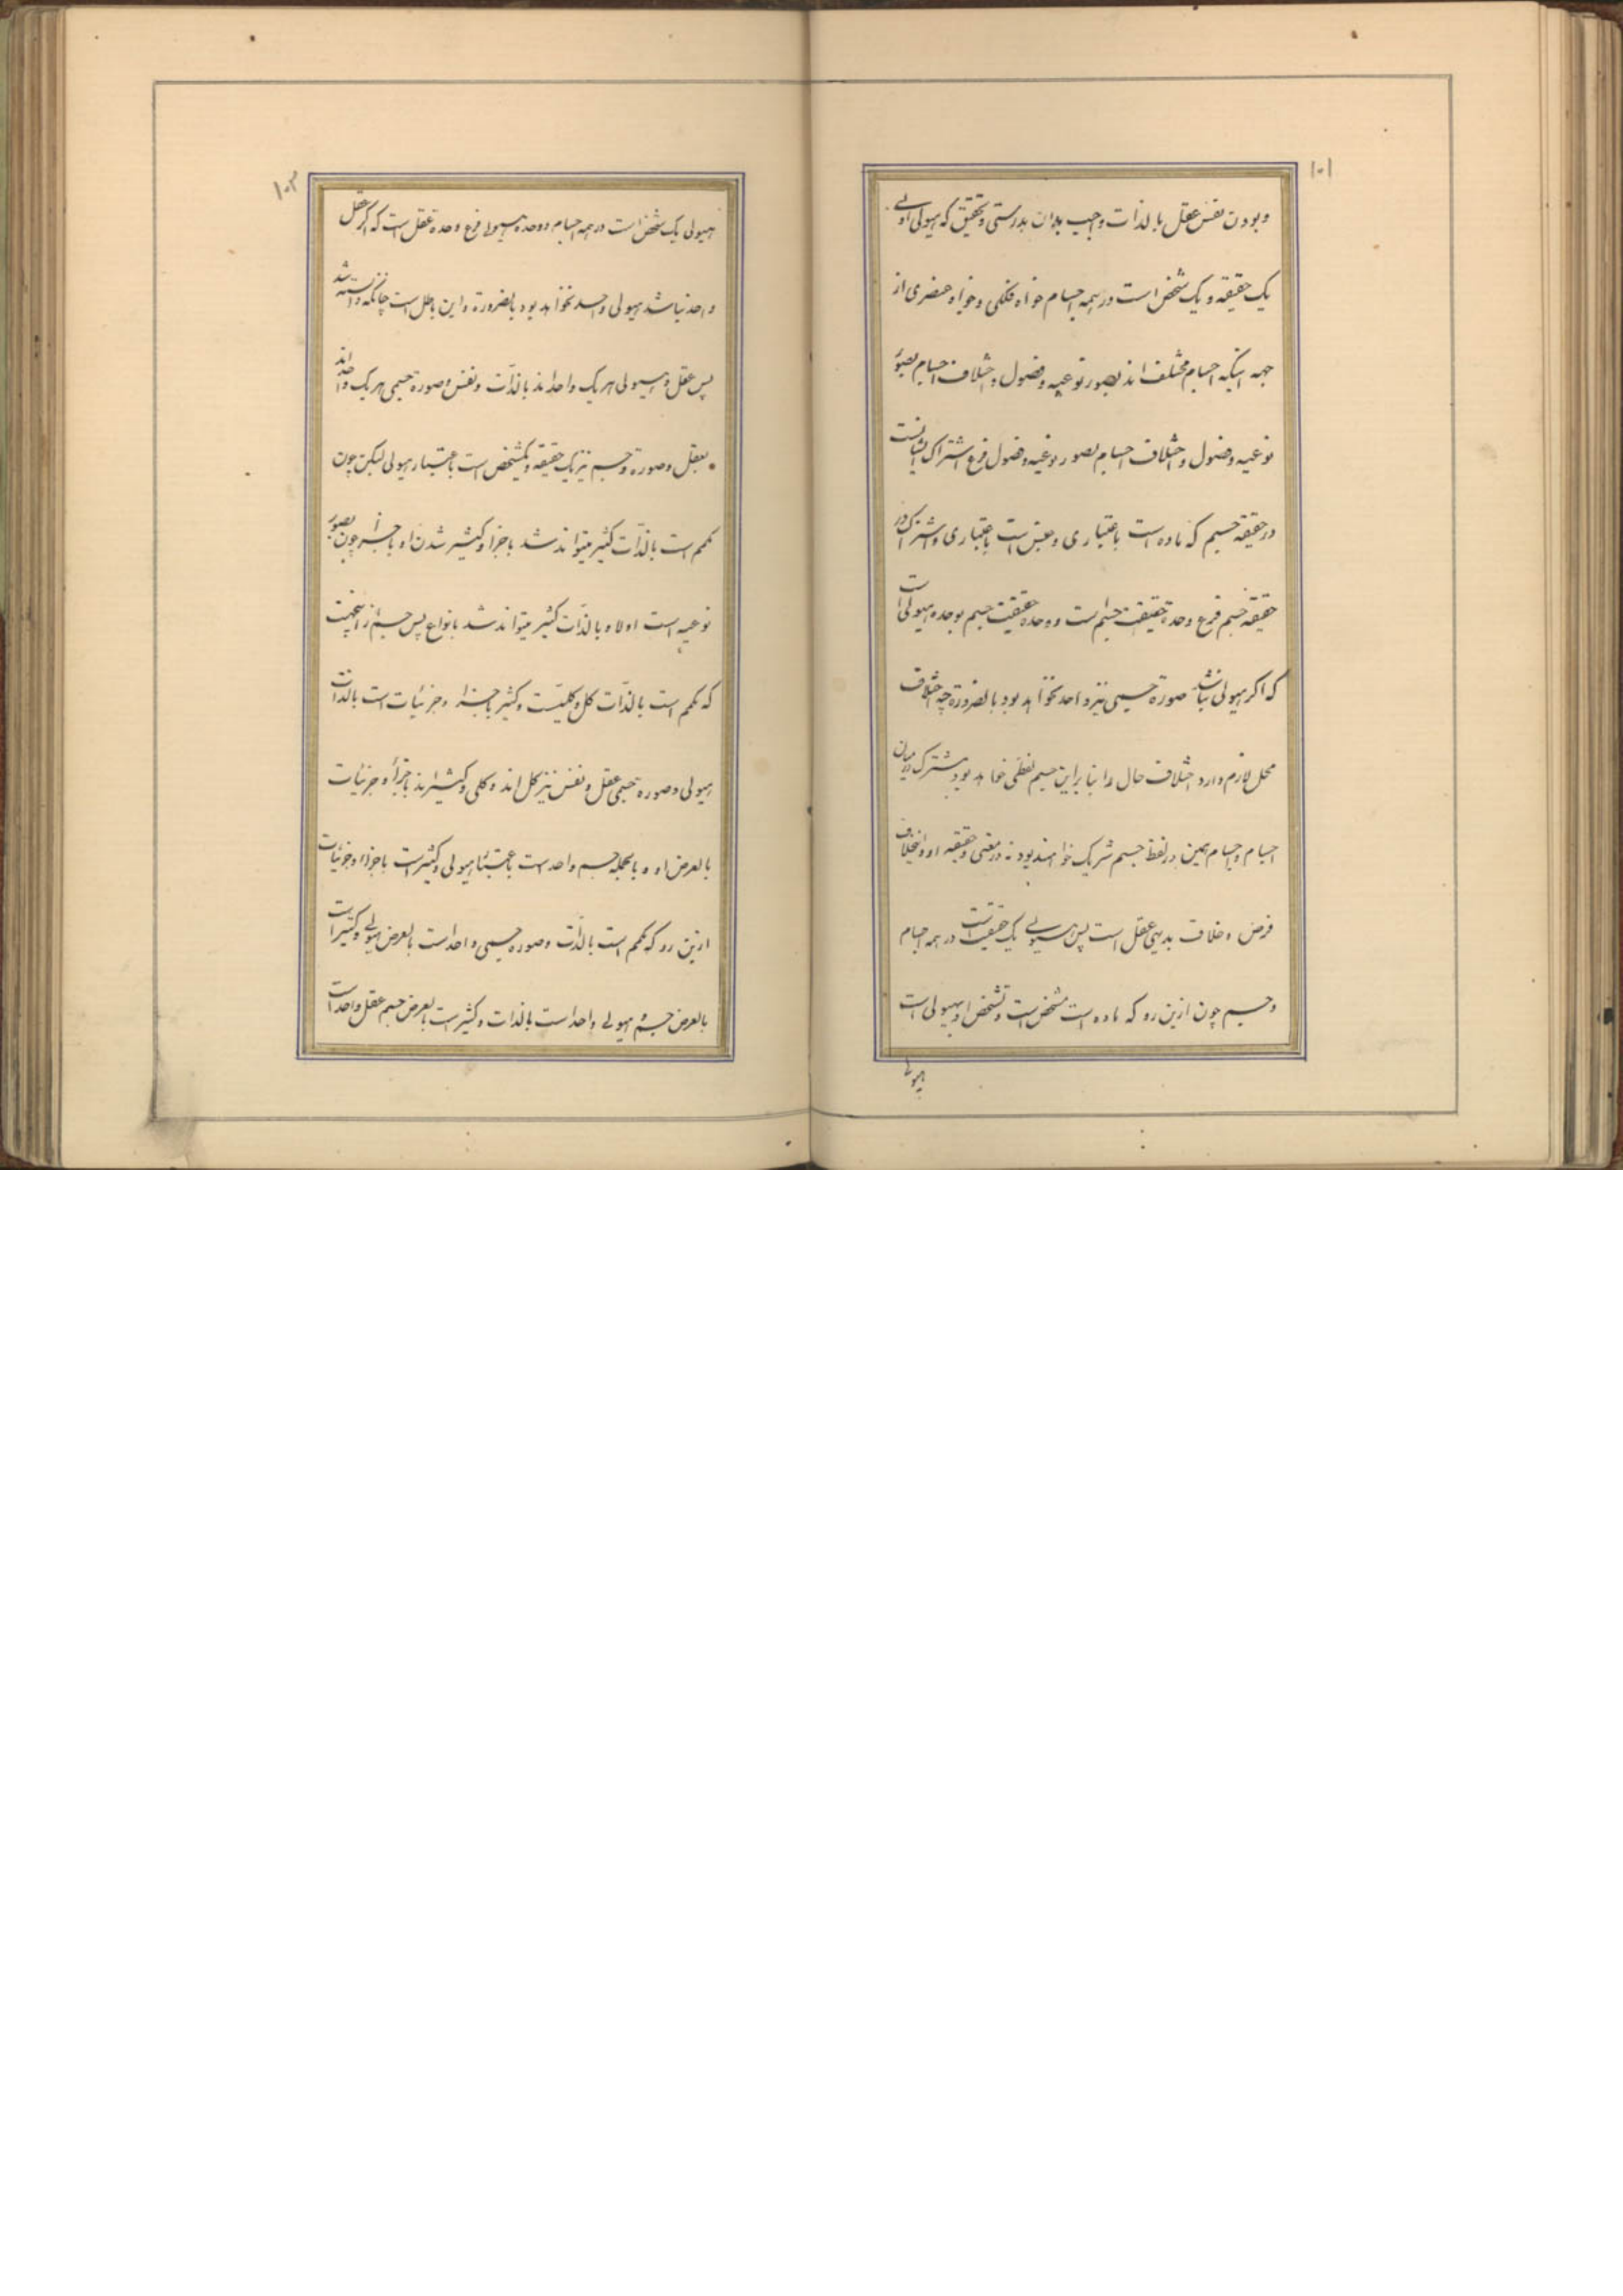 ١٠١
و بودن نفس عقل بالذات واجب بدان بدرستی و تحقیق که هیولی اولی
یک حقیقه و یک شخص است در همه اجسام خواه فلکی و خواه عنصری از
جهه اینکه اجسام مختلف اند بصور نوعیه و فصول و اختلاف اجسام بصور
نوعیه و فصول و اختلاف اجسام بصور نوعیه و فصول فرع اشتراک ایشانست
در حقیقه جسم که ماده است باعتباری و جنس است باعتباری و اشتراک در
حقیقه جسم فرع وحدة حقیقت جسم است و وحدة حقیقت جسم بوحده هیولی است
که اگر هیولی نباشد صورة جسمی نیز واحد نخواهد بود بالضرورة چه اختلاف
محل لازم دارد اختلاف حال را بنا براین جسم لفظی خواهد بود مشترک در میان
اجسام و اجسام همین در لفظ جسم شریک خواهند بود نه در معنی و حقیقه او و اینخلاف
فرض و خلاف بدیهی عقل است پس هیولی یک حقیقت است در همه اجسام
و جسم چون ازین رو که ماده است مشخص است و تشخص او بهیولی است
هیولی
١٠٢
هیولی یک شخص است در همه اجسام و وحده هیولی فرع وحدة عقل است که اگر عقل
واحد نباشد هیولی واحد نخواهد بود بالضرورة و این باطل است چنانکه دانسته شد
پس عقل و هیولی هر یک واحد اند بالذات و نفس و صورة جسمی هر یک واحد اند
بعقل و صورة و جسم نیز یک حقیقه و یکشخص است باعتبار هیولی لیکن چون
کمم است بالذات کثیر میتواند شد باجزا و کثیر شدن او باجزا چون بصور
نوعیه است اولا و بالذات کثیر میتواند شد بانواع پس جسم ازاینجهت
که کمم است بالذات کل و کلیست و کثیر باجزا و جزئیات است بالذات
هیولی و صورة جسمی عقل و نفس نیز کل اند و کلی و کثیراند باجزا و جزئیات
بالعرض او و بالجمله جسم واحد است باعتبار هیولی و کثیر است باجزاء و جزئیات
ازین رو که کمم است بالذات و صورة جسمی واحد است بالعرض هیولی و کثیر است
بالعرض جسم هیولی واحد است بالذات و کثیر است بالعرض جسم عقل واحد است